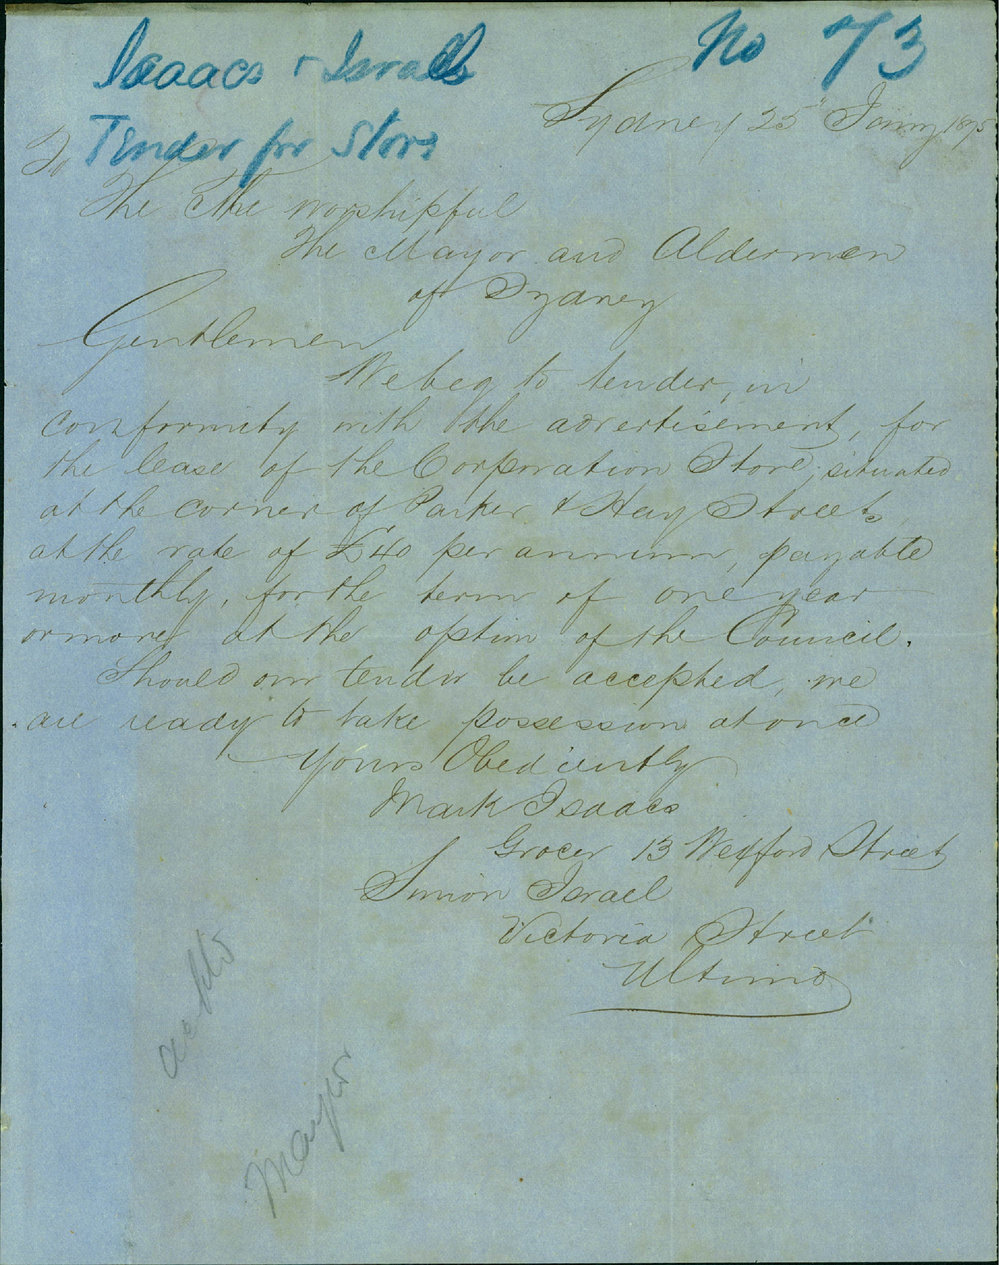 Isaacs & Israels
No 73
Tender for Store
Sydney 25th Janry 1875
To
The The worshipful
The Mayor and Aldermen
of Sydney
Gentlemen
We beg to tender, in
conformity with the advertisement, for
the lease of the Corporation Store, situated
at the corner of Parker & Hay Streets,
at the rate of £40 per annum, payable
monthly, for the term of one year
or more at the option of the Council.
Should our tender be accepted, we
are ready to take possession at once
Yours Obediently
Mark Isaacs
Grocer 13 Wexford Street
Simon Israel
Victoria Street
Ultimo
Mayor